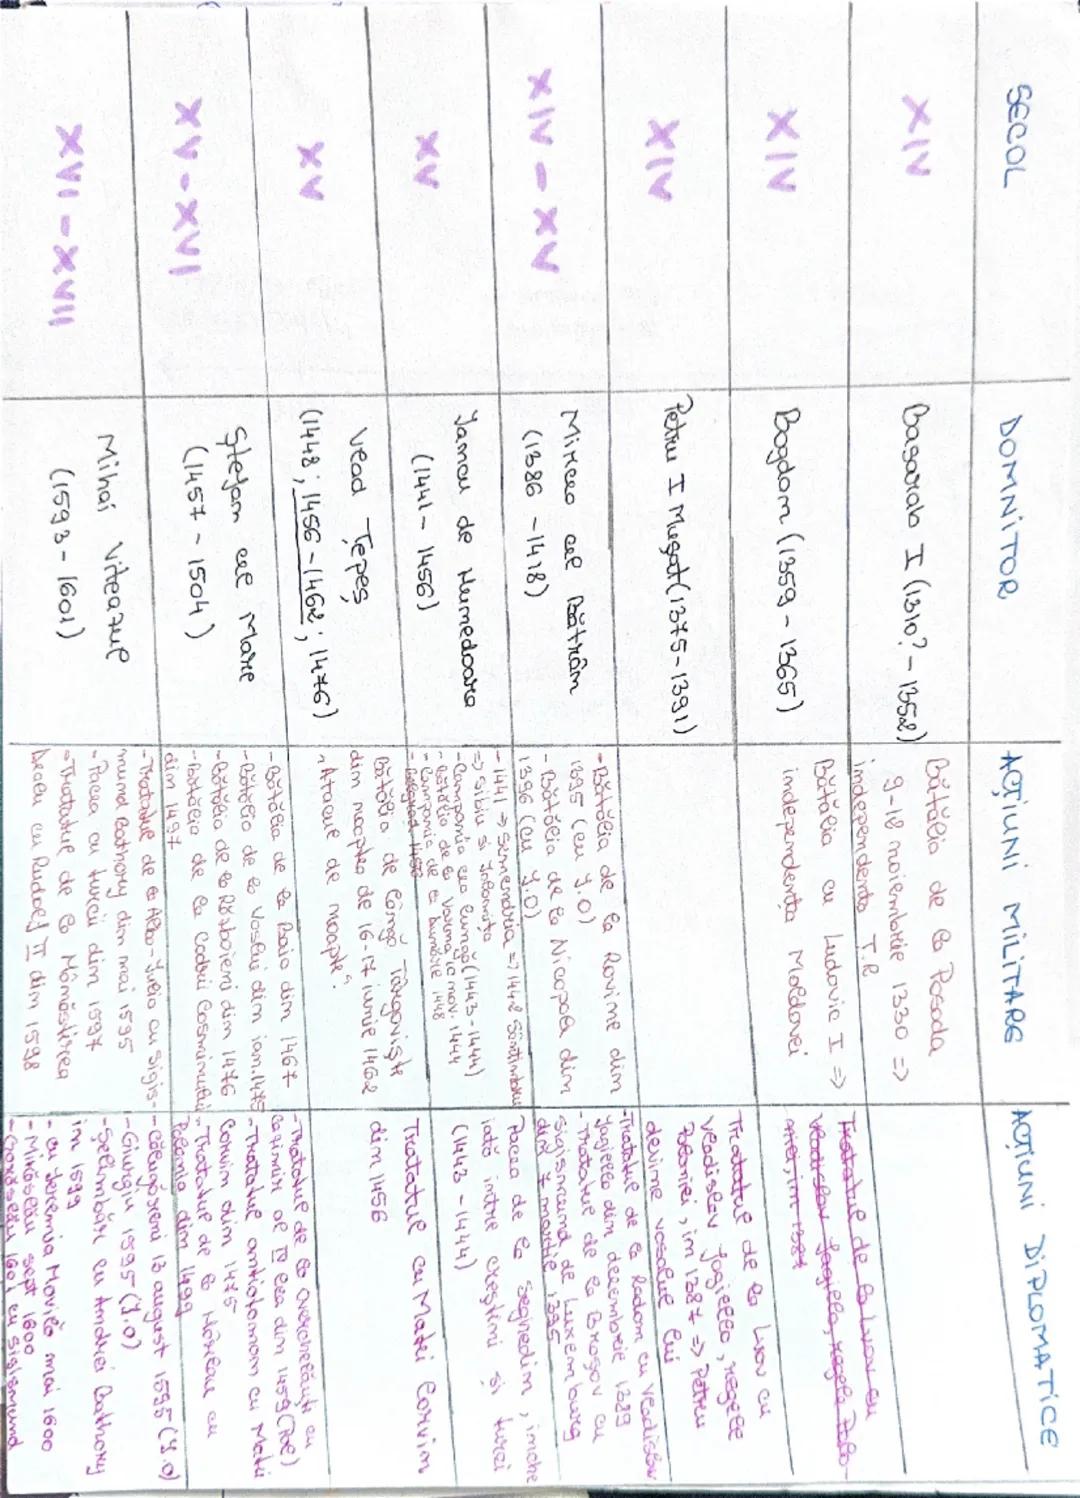 SECOL
DOMNITOR
ACȚIUNI MILITARE
ACȚIUNI DIPLOMATICE
XIV
Basarab I (1310? - 1352)
Bătălia de la Posada
9-12 noiembrie 1330 =>
independența T.R
XIV
Bogdan (1359 - 1365)
Bătălia cu Ludovic I =>
independența Moldovei
Tratatul de la Liov cu
Vladislav Jagiello, regele Polo-
niei, în 1387
XIV
Petru I Mușat (1375-1391)
Tratatul de la Liov cu
Vladislav Jagiello, regele
Poloniei, în 1387 => Petru
devine vasalul lui
XIV - XV
Mircea cel Bătrân
(1386 - 1418)
- Bătălia de la Rovine din
1395 (cu Î.O)
- Bătălia de la Nicopole din
1396 (cu Î.O)
- Tratatul de la Radom cu Vladislav
Jagiello din decembrie 1389
- Tratatul de la Brașov cu
Sigismund de Luxemburg
din 7 martie 1395
XV
Iancu de Hunedoara
(1441 - 1456)
- 1441 => Semendria => 1442 Sântimbru
=> Sibiu și Ialomița
- Campania cea lungă (1443-1444)
- Bătălia de la Varna 10 nov. 1444
- Campania de la Dunăre 1448
- Belgrad 1456
Pacea de la Seghedin, înche
iată între creștini și turci
(1443 - 1444)
XV
Vlad Țepeș
(1448; 1456-1462; 1476)
Bătălia de lângă Târgoviște
din noaptea de 16-17 iunie 1462
„Atacul de noapte"
Tratatul cu Matei Corvin
din 1456
XV - XVI
Ștefan cel Mare
(1457 - 1504)
- Bătălia de la Baia din 1467
- Bătălia de la Vaslui din ian. 1475
- Bătălia de la Războieni din 1476
- Bătălia de la Codrii Cosminului
din 1497
- Tratatul de la Overchelăuți cu
Cazimir al IV-lea din 1459 (Pol)
- Tratatul antiotoman cu Matei
Corvin din 1475
- Tratatul de la Hârlău cu
Polonia din 1499
XVI - XVII
Mihai Viteazul
(1593 - 1601)
- Tratatul de la Alba-Iulia cu Sigis-
mund Bathory din mai 1595
- Pacea cu turcii din 1597
- Tratatul de la Mănăstirea
Dealu cu Rudolf II din 1598
- Călugăreni 13 august 1595 (Î.O)
- Giurgiu 1595 (Î.O)
- Șelimbăr cu Andrei Bathory
în 1599
- cu Ieremia Movilă mai 1600
- Mirăslău sept 1600
- Gorăslău 1601 cu Sigismund